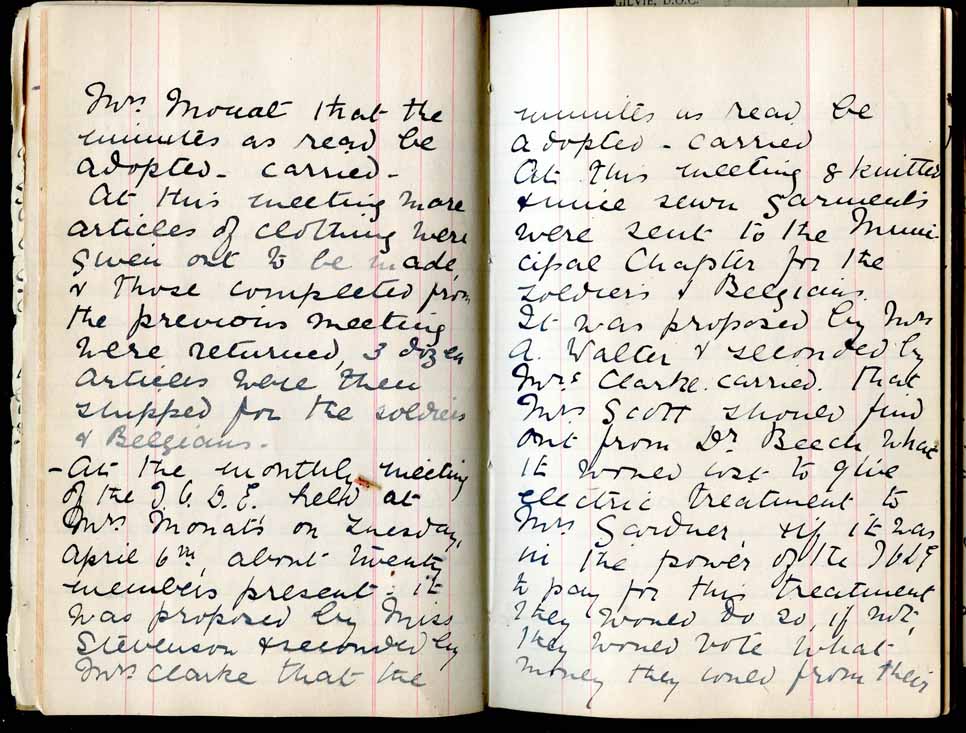 GILVIE, D.O.C.
Mrs. Mouat that the
minutes as read be
adopted - carried -
At this meeting more
articles of clothing were
given out to be made,
& those completed from
the previous meeting
were returned, 3 dozen
articles were then
shipped for the soldiers
& Belgians.
- At the monthly meeting
of the I.O.D.E. held at
Mrs Mouat's on Tuesday,
April 6th, about twenty
members present. it
was proposed by Miss
Stevenson & seconded by
Mrs Clarke that the
minutes as read be
adopted - carried
At this meeting 8 knitted
& nine sewn garments
were sent to the Muni-
cipal Chapter for the
soldiers & Belgians.
It was proposed by Mrs
A. Walter & seconded by
Mrs Clarke. carried. that
Mrs Scott should find
out from Dr. Beech what
it would cost to give
electric treatment to
Mrs Gardner, & if it was
in the power of the IODE
to pay for this treatment
they would do so, if not,
they would vote what
money they could from their